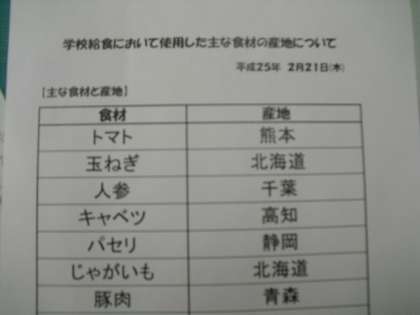 学校給食において使用した主な食材の産地について
平成25年 2月21日(木)
【主な食材と産地】
食材 産地
トマト 熊本
玉ねぎ 北海道
人参 千葉
キャベツ 高知
パセリ 静岡
じゃがいも 北海道
豚肉 青森